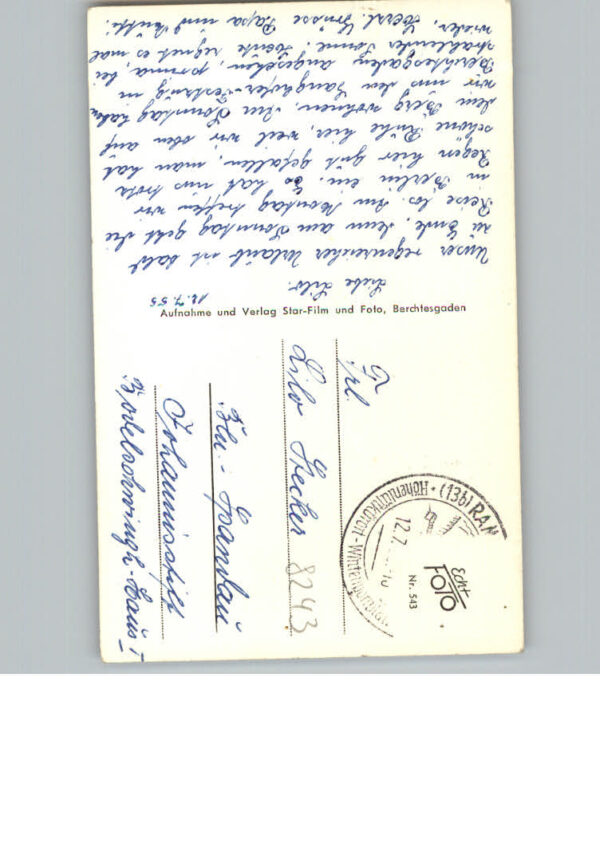 12.7.55
Liebe Lilo.
Unser regenreicher Urlaub ist bald
zu Ende, denn am Sonntag geht die
Reise los. Am Montag treffen wir
in Berlin ein. Es hat uns trotz
Regen hier gut gefallen, man hat
schöne Ruhe hier, weil wir oben auf
dem Berg wohnen. Am Sonntag haben
wir uns den Ganghofer-Festzug in
Berchtesgaden angesehen, prima, bei
strahlender Sonne. Heute regnet es mal
wieder. Herzl. Grüsse Papa und Mutti.
Aufnahme und Verlag Star-Film und Foto, Berchtesgaden
Frl.
Lilo Stecher
8243
Bln.-Spandau
Johannisstift
Bodelschwingh-Haus
(13b) RAM
Höhenluftkurort - Wintersportplatz
12.7.
Echt
FOTO
Nr. 543